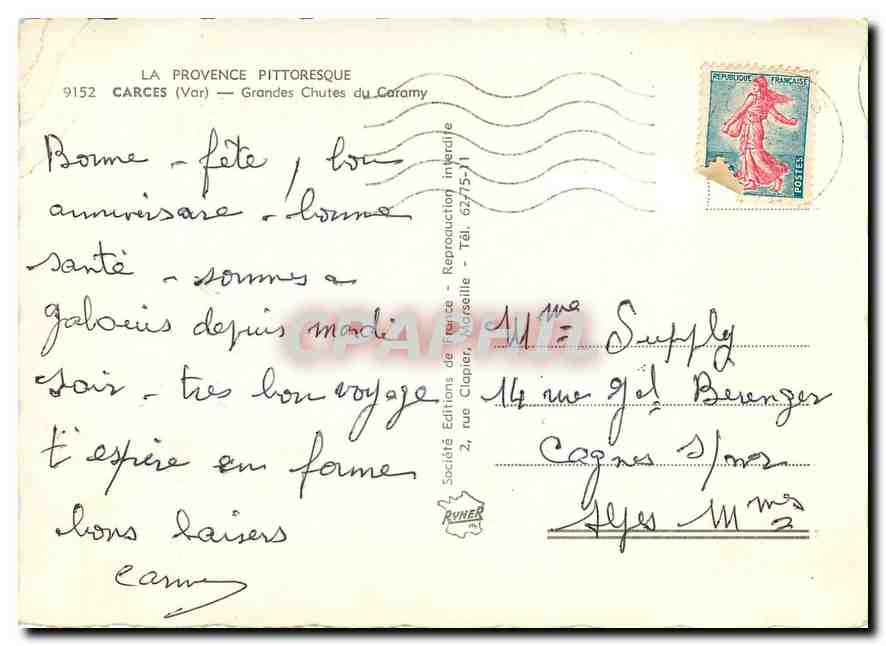 LA PROVENCE PITTORESQUE
9152 CARCES (Var) — Grandes Chutes du Caramy
Bonne - fête, bon
anniversaire - bonne
santé - sommes a
depuis mardi
soir - tres bon voyage
t'espère en forme
bons baisers
Société Editions de France - Reproduction interdite
2, rue Clapier, Marseille - Tél. 62-75-11
RYNER
REPUBLIQUE FRANÇAISE
POSTES
Mme Supply
14 rue Gal Berenger
Cagnes s/mer
Alpes Mmes
CPARAMA